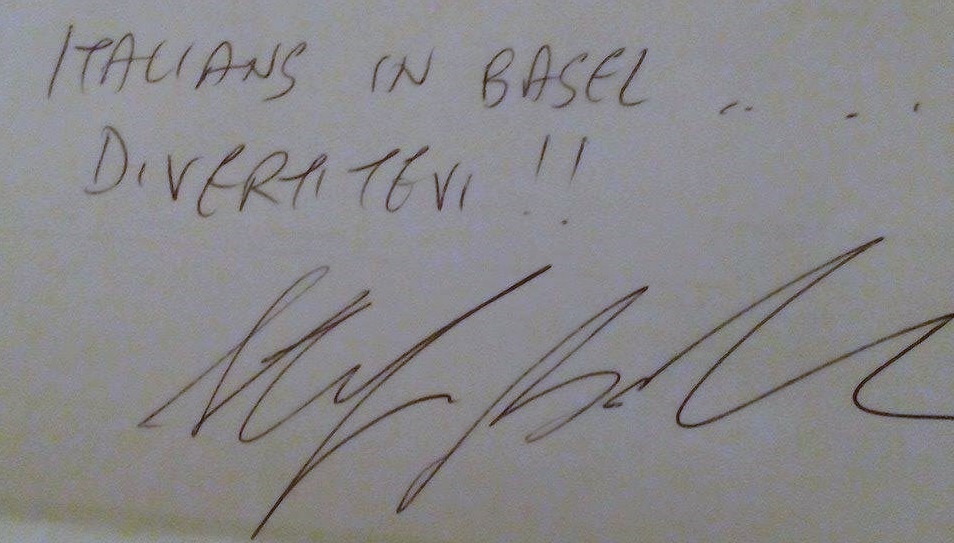 ITALIANS IN BASEL .. . .
DIVERTITEVI !!